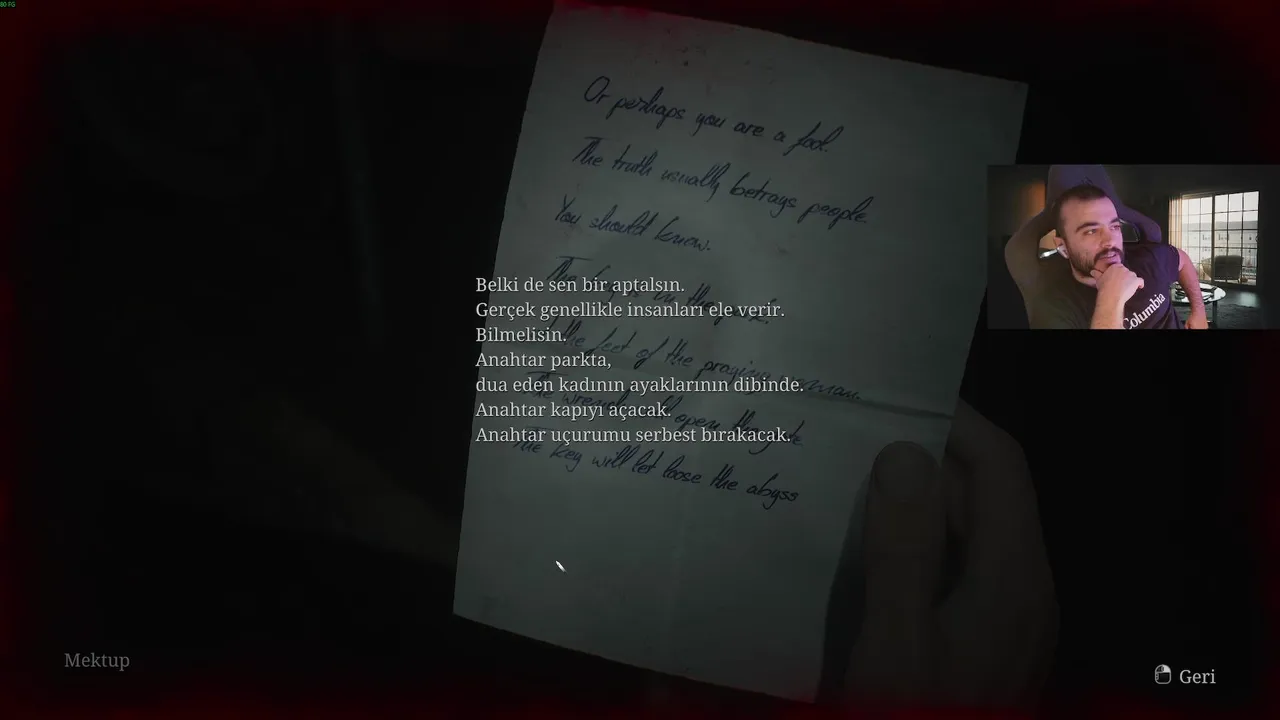 80 FG
Or perhaps you are a fool.
The truth usually betrays people.
You should know.
Belki de sen bir aptalsın.
Gerçek genellikle insanları ele verir.
Bilmelisin.
Anahtar parkta,
dua eden kadının ayaklarının dibinde.
Anahtar kapıyı açacak.
Anahtar uçurumu serbest bırakacak.
feet of the praying woman.
The key will let loose the abyss
Columbia
Mektup
Geri